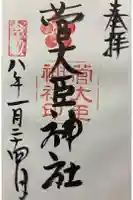 奉拝
菅大臣神社
菅大臣
神社印
八年一月二十四日